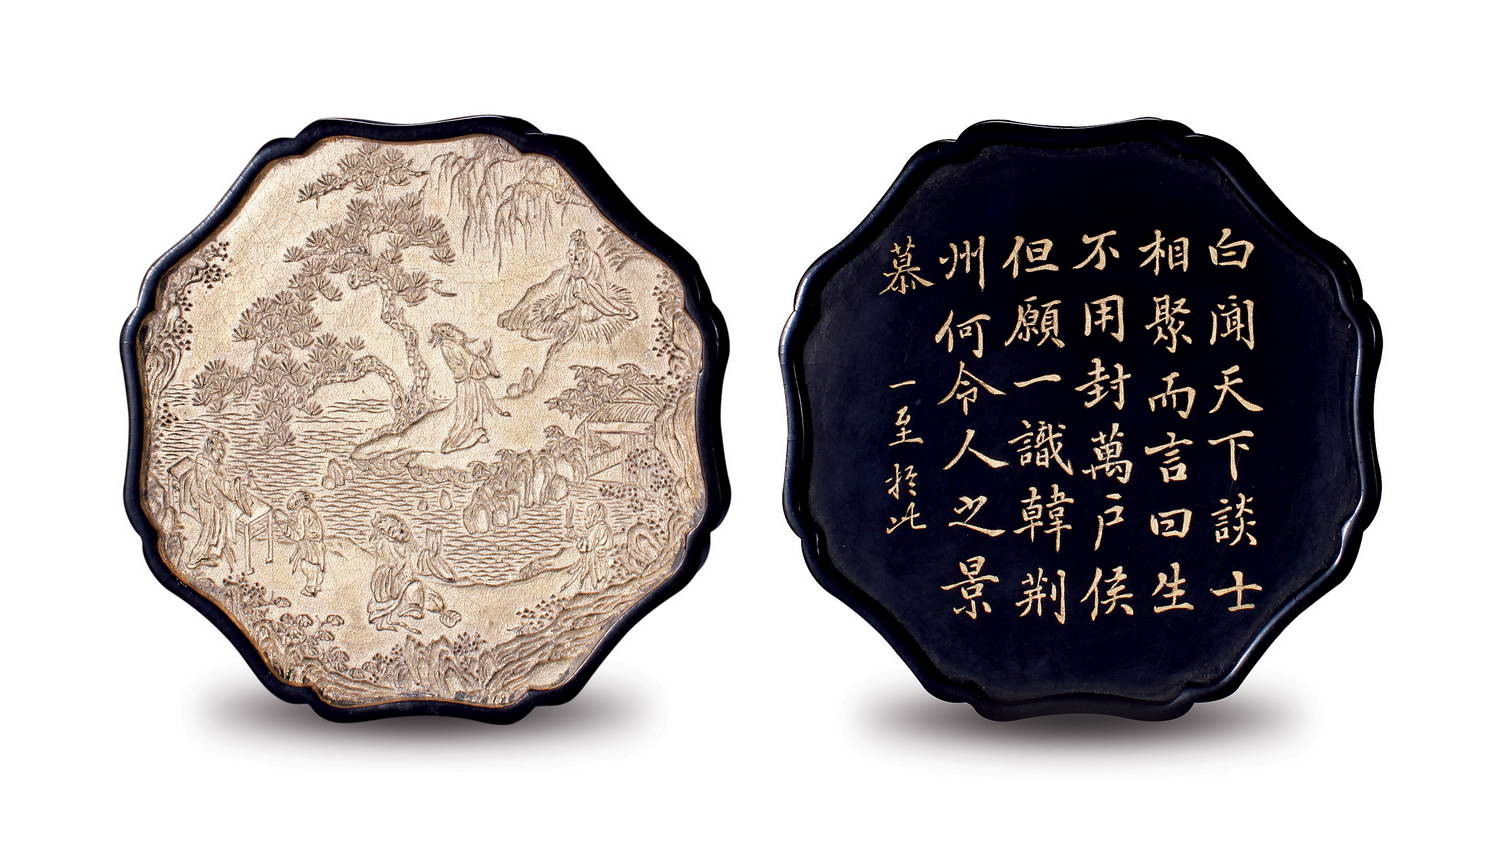 白聞天下談士
相聚而言曰生
不用封萬戶侯
但願一識韓荆
州何令人之景
慕
一至於此